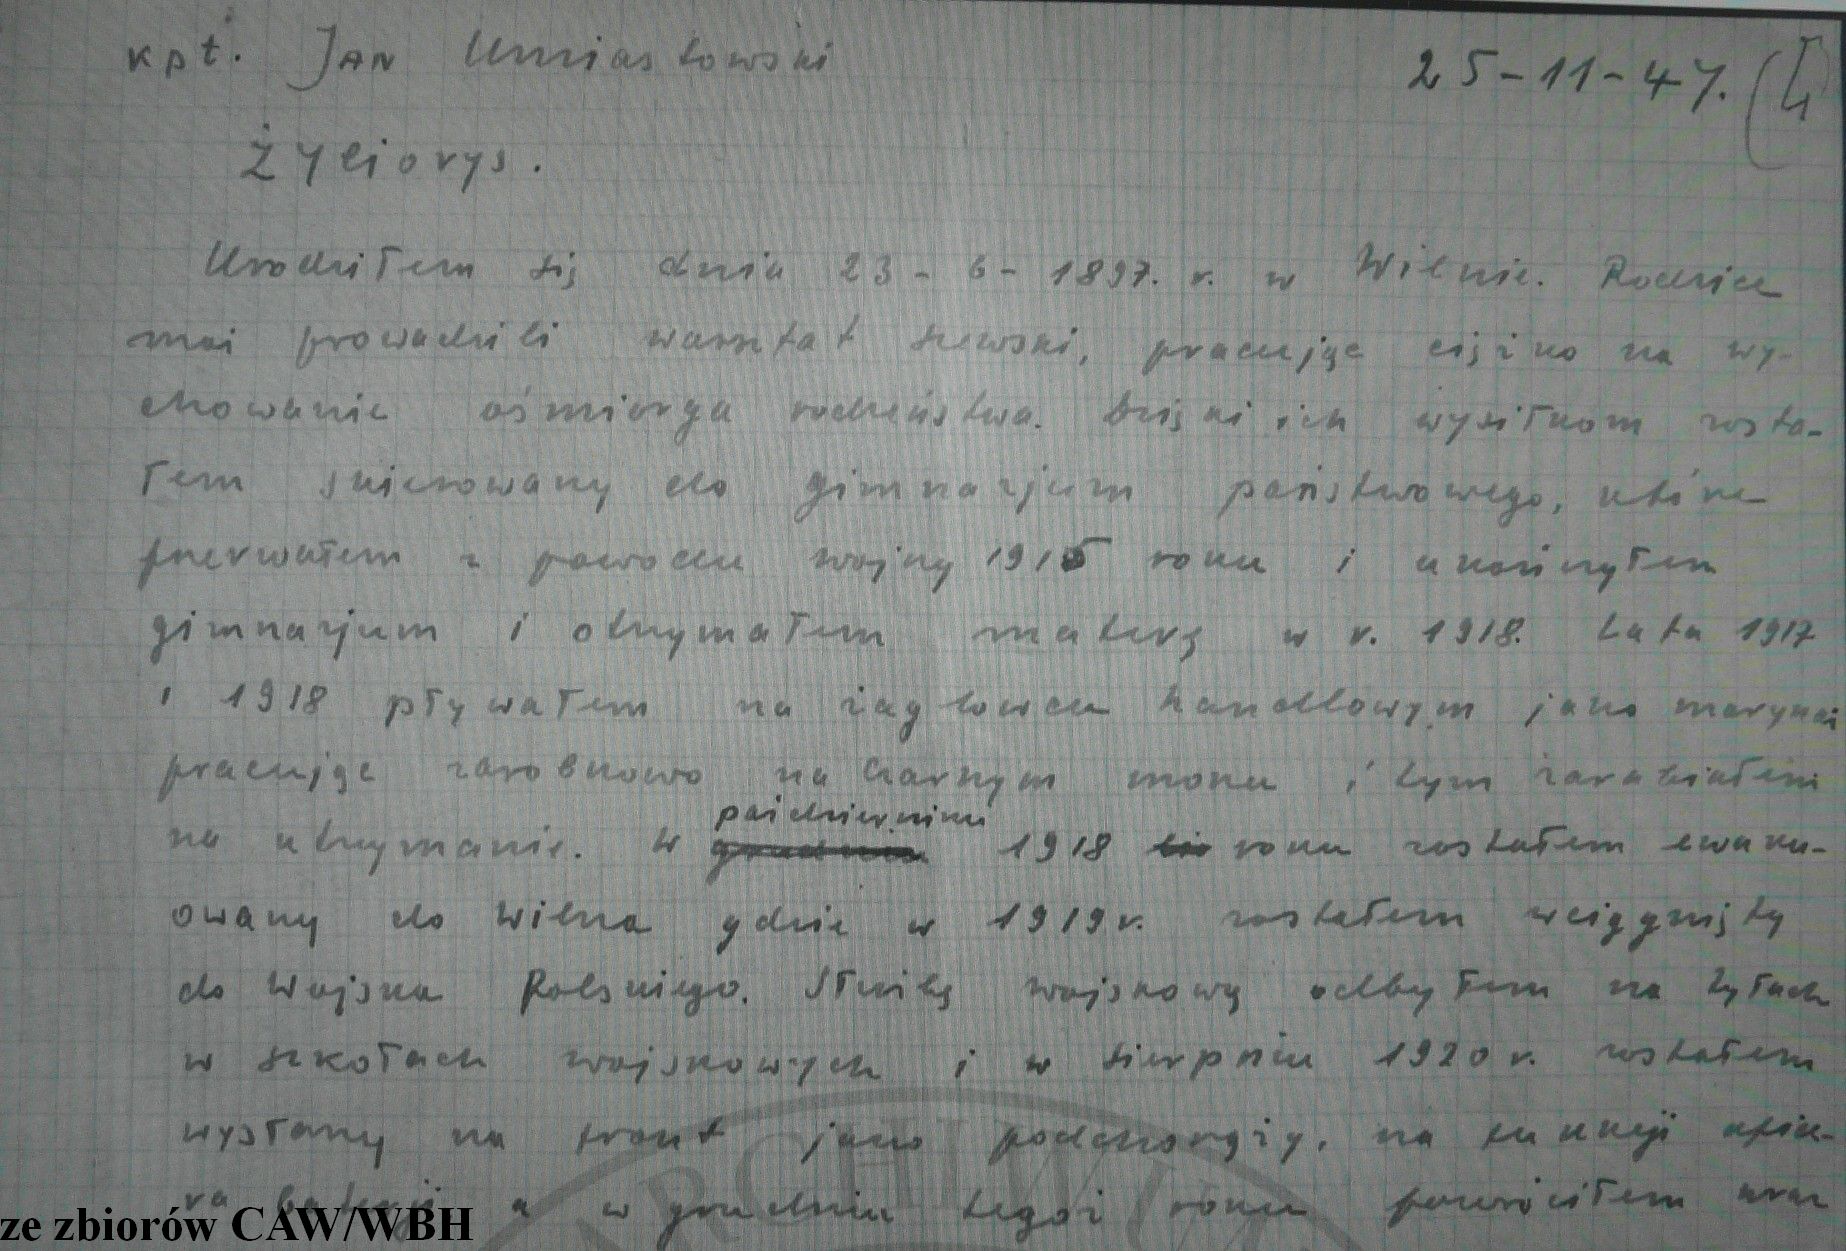 kpt. Jan Umiastowski
25-11-47. (I
Życiorys.
Urodziłem się dnia 23-6-1897. r. w Wilnie. Rodzice
moi prowadzili warsztat szewski, pracując ciężko na wy-
chowanie ośmiorga rodzeństwa. Dzięki ich wysiłkom zosta-
łem skierowany do gimnazjum państwowego, które
przerwałem z powodu wojny 1915 roku i ukończyłem
gimnazjum i otrzymałem maturę w r. 1918. Lata 1917
i 1918 pływałem na żaglowcu handlowym jako marynarz
pracując zarobkowo na Czarnym morzu i tym zarabiałem
na utrzymanie. W październiku 1918 roku zostałem ewaku-
owany do Wilna gdzie w 1919 r. zostałem wciągnięty
do Wojska Polskiego. Służbę wojskową odbyłem na tyłach
w szkołach wojskowych i w sierpniu 1920 r. zostałem
wysłany na front jako podchorąży, na funkcji ofice-
ra baterji a w grudniu tegoż roku powróciłem wraz
ze zbiorów CAW/WBH